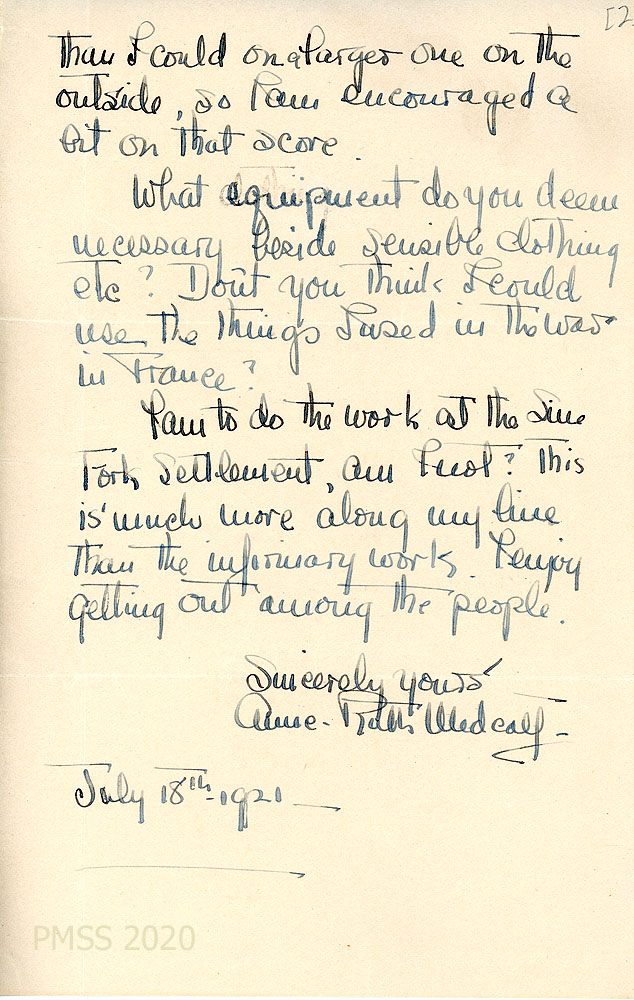 [2
than I could on a larger one on the
outside, so I am encouraged a
bit on that score.
What equipment do you deem
necessary beside sensible clothing
etc? Don't you think I could
use the things I used in the war
in France?
I am to do the work at the Line
Fork Settlement, am I not? This
is much more along my line
than the infirmary work. I enjoy
getting out among the people.
Sincerely yours
Anne-Ruth Medcalf-
July 18th-1921
PMSS 2020